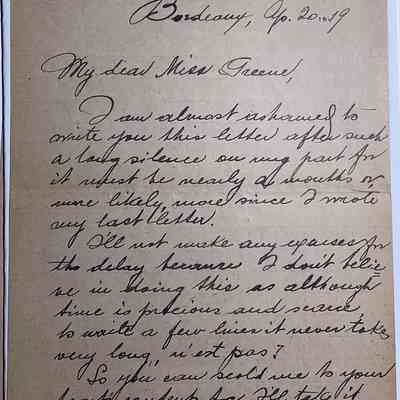 Bordeaux, Ap. 20. 19
My dear Miss Greene,
I am almost ashamed to
write you this letter after such
a long silence on my part for
it must be nearly a months or
more likely more since I wrote
any last letter.
I'll not make any excuses for
the delay because I don't belie
ve in doing this as although
time is precious and scarce
to write a few lines it never takes
very long, n'est pas?
So you can scold me to your
heart's content for I'll take it